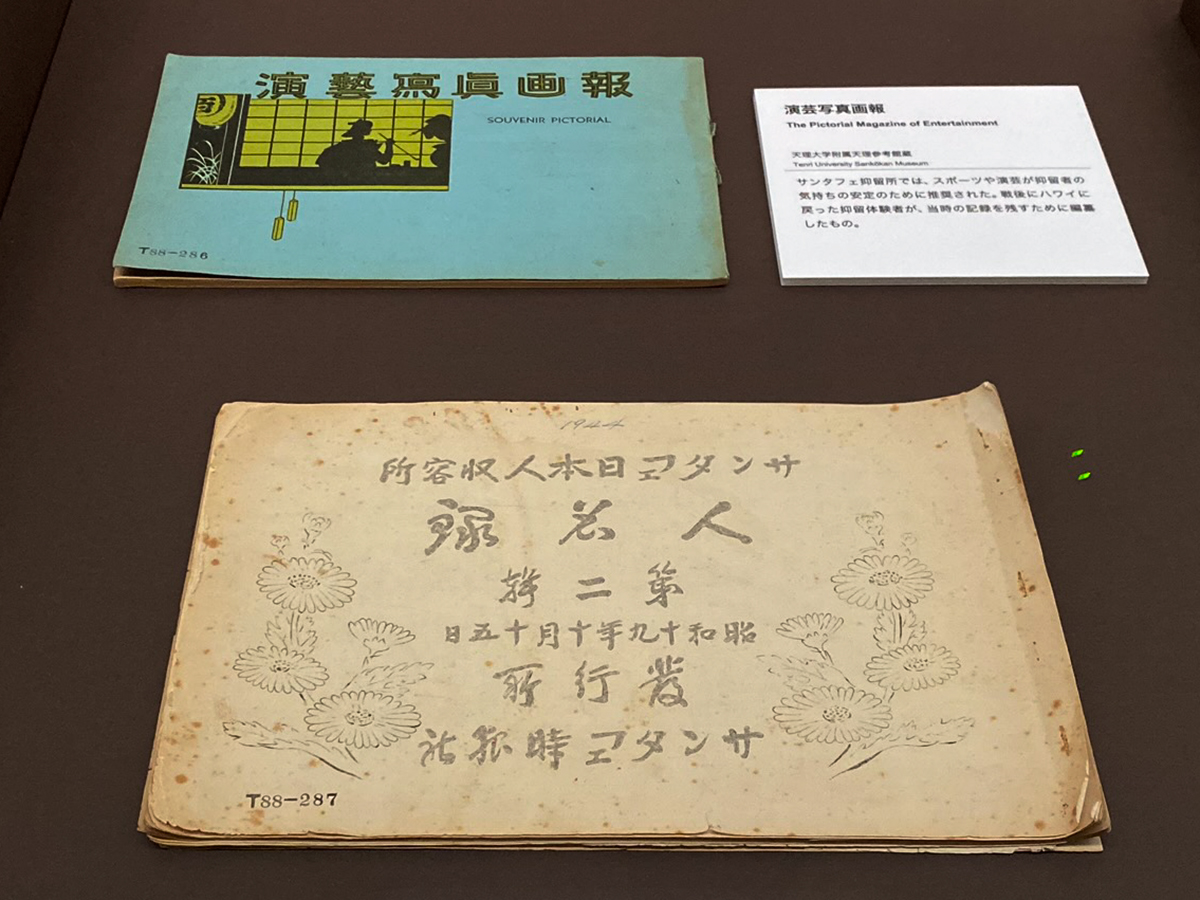 演藝寫眞画報
SOUVENIR PICTORIAL
T88-286
演芸写真画報
The Pictorial Magazine of Entertainment
天理大学附属天理参考館蔵
Tenri University Sankōkan Museum
サンタフェ抑留所では、スポーツや演芸が抑留者の
気持ちの安定のために推奨された。戦後にハワイに
戻った抑留体験者が、当時の記録を残すために編纂
したもの。
1944
サンタフェ日本人収容所
人名録
第二輯
昭和十九年十月十五日
發行所
サンタフェ時報社
T88-287